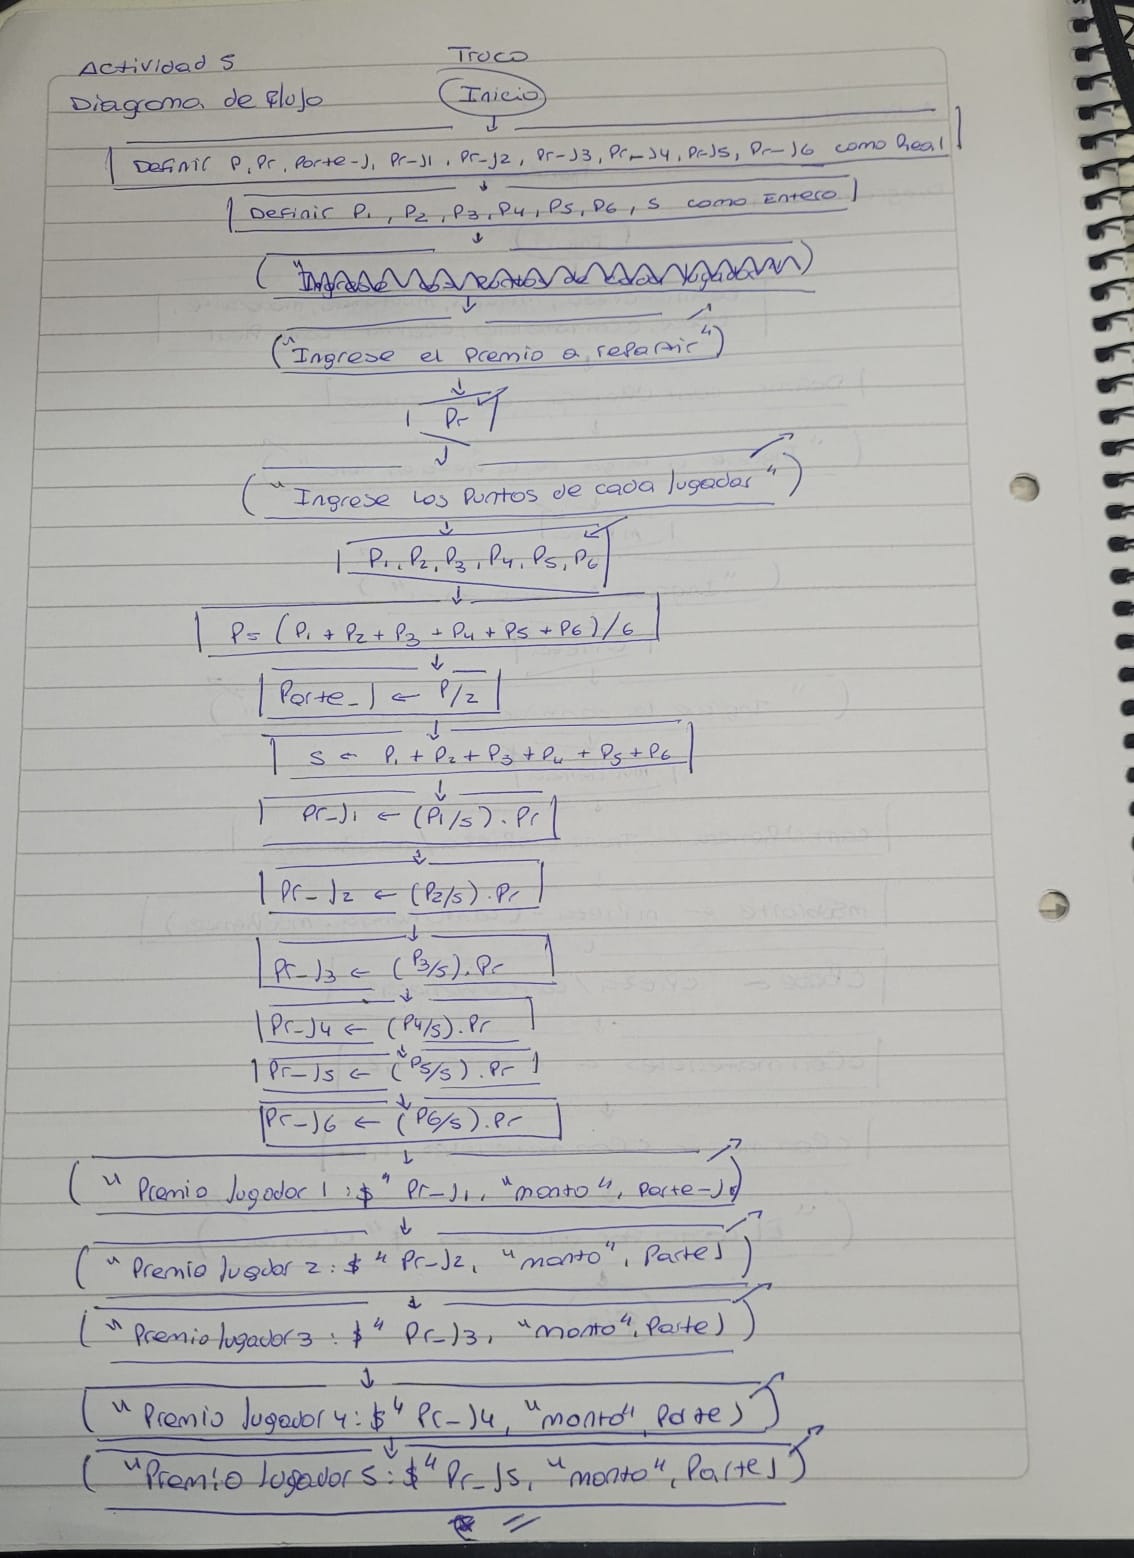 Actividad 5
Truco
Diagrama de flujo
Inicio
Definir P, Pr, Parte-J, Pr-J1, Pr-J2, Pr-J3, Pr-J4, Pr-J5, Pr-J6 como Real
Definir P1, P2, P3, P4, P5, P6, S como Entero
"Ingrese el premio a repartir"
Pr
"Ingrese los puntos de cada jugador"
P1, P2, P3, P4, P5, P6
P= (P1 + P2 + P3 + P4 + P5 + P6)/6
Parte_J ← P/2
S ← P1 + P2 + P3 + P4 + P5 + P6
Pr-J1 ← (P1/S) . Pr
Pr-J2 ← (P2/S) . Pr
Pr-J3 ← (P3/S) . Pr
Pr-J4 ← (P4/S) . Pr
Pr-J5 ← (P5/S) . Pr
Pr-J6 ← (P6/S) . Pr
"Premio Jugador 1 : $" Pr-J1, "monto", Parte-J
"Premio Jugador 2 : $" Pr-J2, "monto", ParteJ
"Premio Jugador 3 : $" Pr-J3, "monto", ParteJ
"Premio Jugador 4 : $" Pr-J4, "monto", ParteJ
"Premio Jugador 5 : $" Pr-J5, "monto", ParteJ